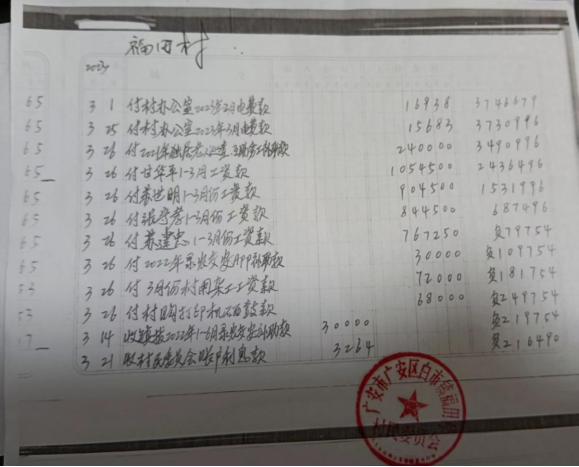 福田村
2023
3 1 付村办公室2023年2月电费款 16938 3746679
3 25 付村办公室2023年3月电费款 15683 3730996
3 26 付2021年 款 240000 3490996
3 26 付甘华平1-3月工资款 1054500 2436496
3 26 付苏世明1-3月份工资款 904500 1531996
3 26 付 1-3月份工资款 844500 687496
3 26 付苏建忠1-3月份工资款 767250 负79754
3 26 付2022年 APP 款 30000 负109754
3 26 付3月份村用杂工工资款 72000 负181754
3 26 付村购打印机 款 68000 负249754
3 14 收 2022年1-6月 款 30000 负219754
3 21 收村 委员会账户利息款 3264 负216490
65
65
65
65
65
65
65
53
53
17
广安市广安区白市镇福田村村民委员会